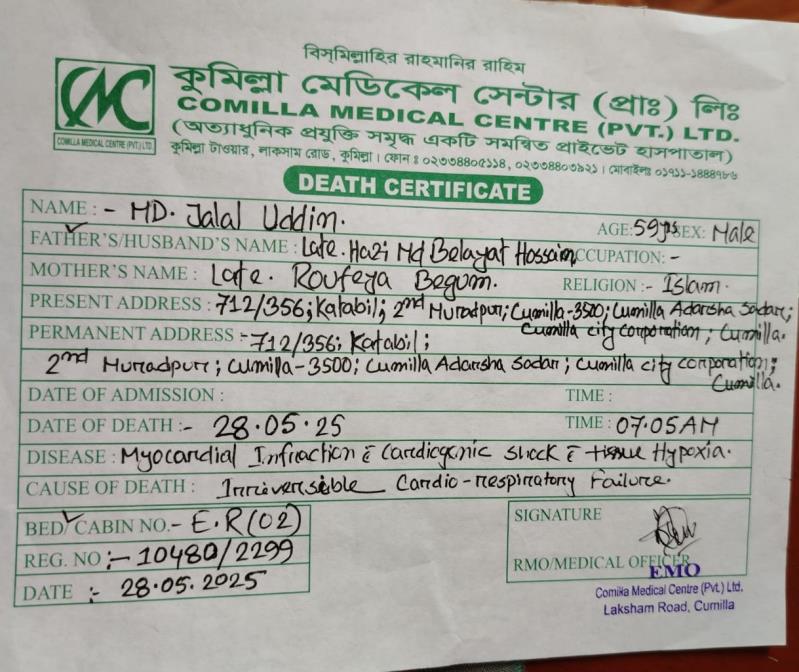 বিস্‌মিল্লাহির রাহমানির রাহিম
CMC
COMILLA MEDICAL CENTRE (PVT.) LTD.
কুমিল্লা মেডিকেল সেন্টার (প্রাঃ) লিঃ
COMILLA MEDICAL CENTRE (PVT.) LTD.
(অত্যাধুনিক প্রযুক্তি সমৃদ্ধ একটি সমন্বিত প্রাইভেট হাসপাতাল)
কুমিল্লা টাওয়ার, লাকসাম রোড, কুমিল্লা। ফোন ঃ ০২৩৩৪৪০৫১১৪, ০২৩৩৪৪০৩৯২১। মোবাইলঃ ০১৭১১-১৪৪৪৭৮৬
DEATH CERTIFICATE
NAME : - MD. Jalal Uddin. AGE: 59 yrs SEX: Male
FATHER'S/HUSBAND'S NAME : Late. Hazi Md Belayat Hossain OCCUPATION: -
MOTHER'S NAME : Late. Roufeya Begum. RELIGION :- Islam.
PRESENT ADDRESS : 712/356; Katabil; 2nd Muradpur; Cumilla-3500; Cumilla Adarsha Sadar;
Cumilla city corporation; Cumilla.
PERMANENT ADDRESS :- 712/356; Katabil;
2nd Muradpur; Cumilla-3500; Cumilla Adarsha Sadar; Cumilla city corporation;
Cumilla.
DATE OF ADMISSION : TIME :
DATE OF DEATH :- 28.05.25 TIME : 07.05AM
DISEASE : Myocardial Infraction c̄ Cardiogenic shock c̄ tissue Hypoxia.
CAUSE OF DEATH : Irriversible Cardio-respiratory Failure.
BED/CABIN NO.- E.R(02)
REG. NO :- 10480/2299
DATE :- 28.05.2025
SIGNATURE
RMO/MEDICAL OFFICER
EMO
Comilla Medical Centre (Pvt.) Ltd.
Laksham Road, Cumilla